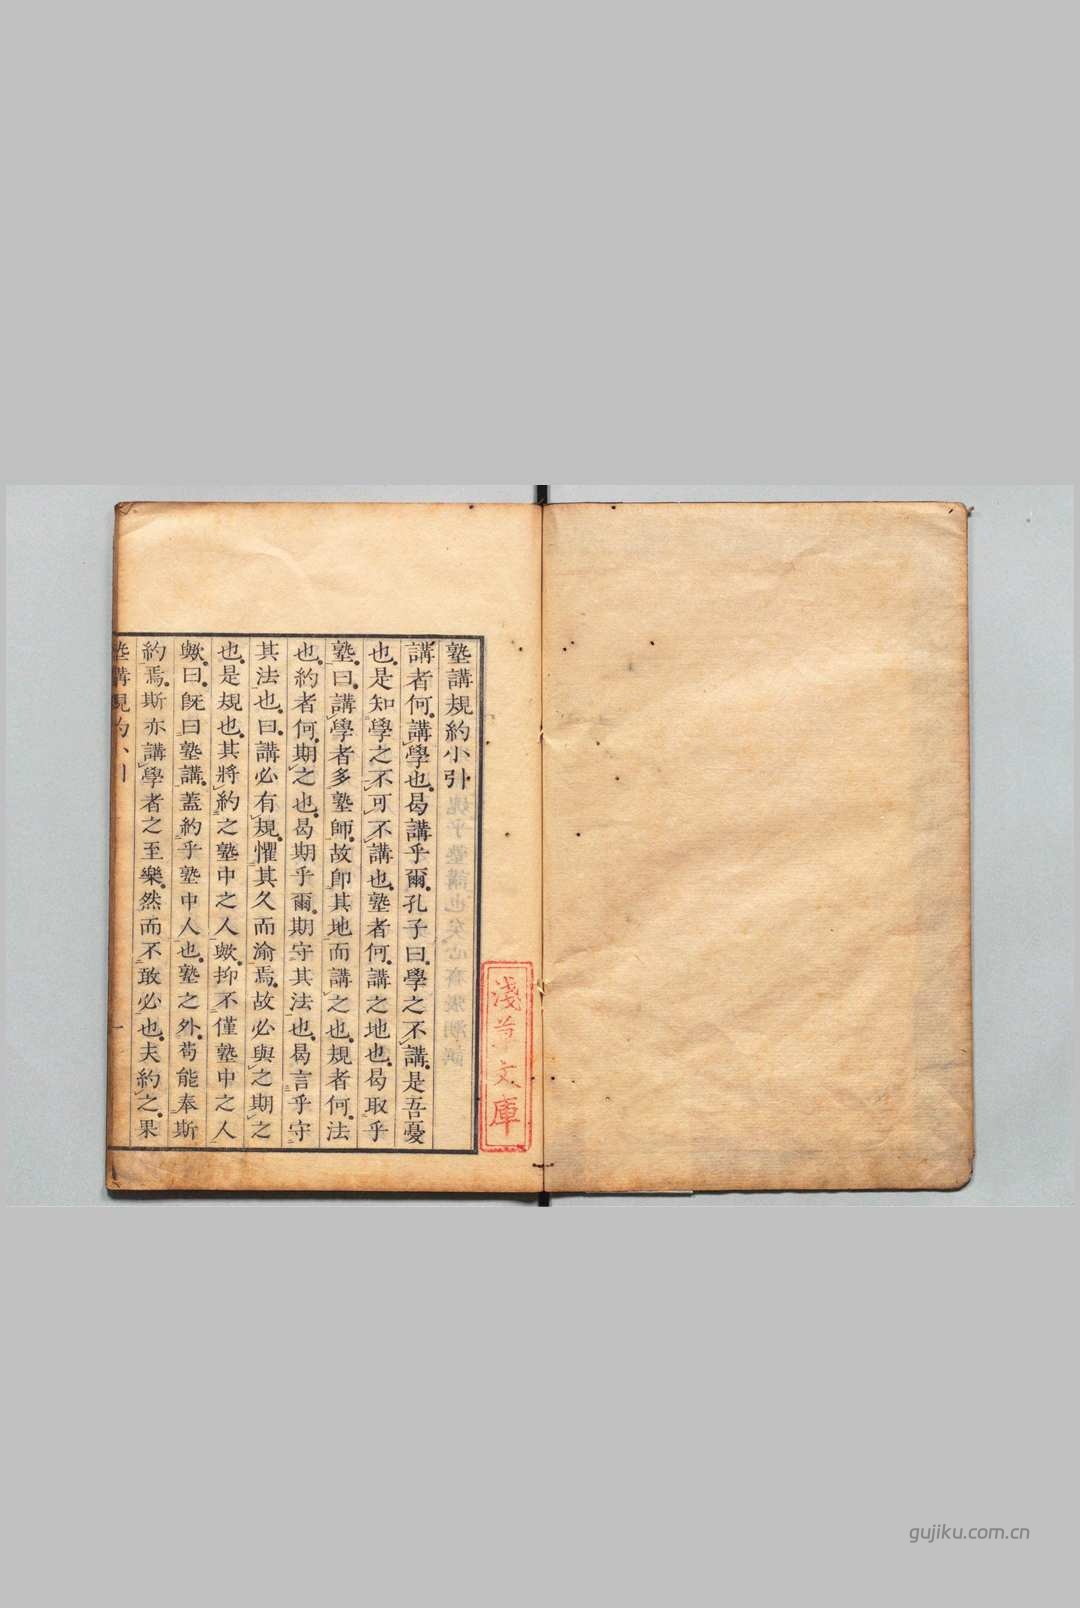 塾講規約小引
講者何講學也曷講乎爾孔子曰學之不講是吾憂
也是知學之不可不講也塾者何講之地也曷取乎
塾曰講學者多塾師故卽其地而講之也規者何法
也約者何期之也曷期乎爾期守其法也曷言乎守
其法也曰講必有規懼其久而渝焉故必與之期之
也是規也其將約之塾中之人歟抑不僅塾中之人
歟曰旣曰塾講蓋約乎塾中人也塾之外苟能奉斯
約焉斯亦講學者之至樂然而不敢必也夫約之果
塾講規約小引
一
淺草文庫
gujiku.com.cn